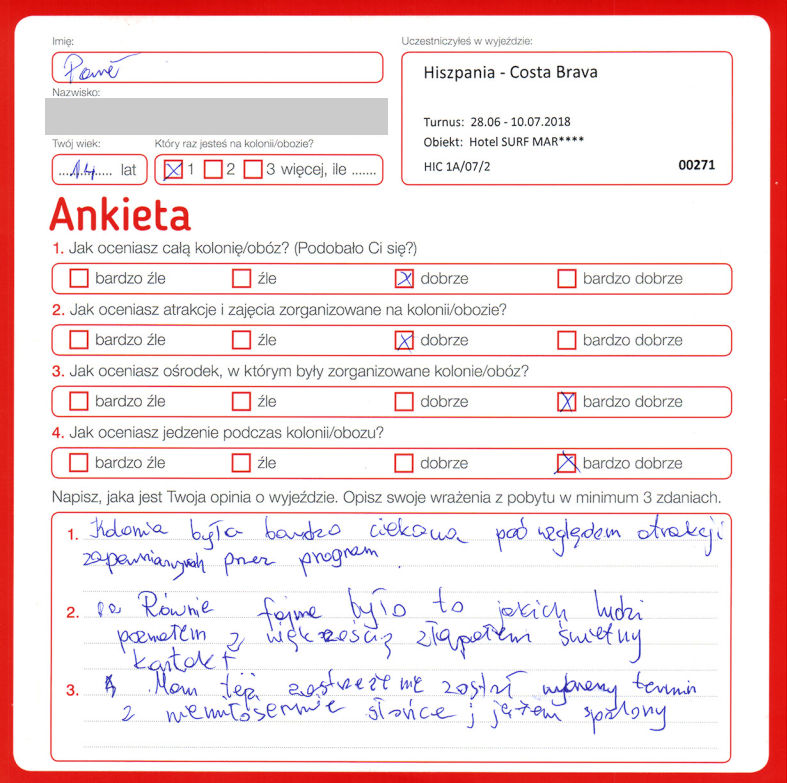 Imię:
Paweł
Nazwisko:
Twój wiek:
14 lat
Który raz jesteś na kolonii/obozie?
1 2 3 więcej, ile .......
Uczestniczyłeś w wyjeździe:
Hiszpania - Costa Brava
Turnus: 28.06 - 10.07.2018
Obiekt: Hotel SURF MAR****
HIC 1A/07/2 00271
Ankieta
1. Jak oceniasz całą kolonię/obóz? (Podobało Ci się?)
bardzo źle źle dobrze bardzo dobrze
2. Jak oceniasz atrakcje i zajęcia zorganizowane na kolonii/obozie?
bardzo źle źle dobrze bardzo dobrze
3. Jak oceniasz ośrodek, w którym były zorganizowane kolonie/obóz?
bardzo źle źle dobrze bardzo dobrze
4. Jak oceniasz jedzenie podczas kolonii/obozu?
bardzo źle źle dobrze bardzo dobrze
Napisz, jaka jest Twoja opinia o wyjeździe. Opisz swoje wrażenia z pobytu w minimum 3 zdaniach.
1. Kolonia była bardzo ciekawa pod względem atrakcji
zapewnianych przez program
2. Równie fajne było to jakich ludzi
poznałem z większością złapałem świetny
kontakt
3. Mam też że został wybrany termin
z niemiłosiernie słońce i jestem spalony